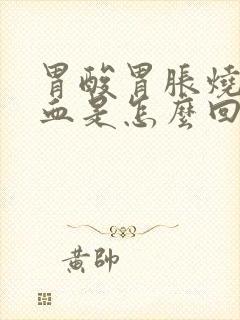 胃酸胃脹燒
血是怎麼回
黃帥